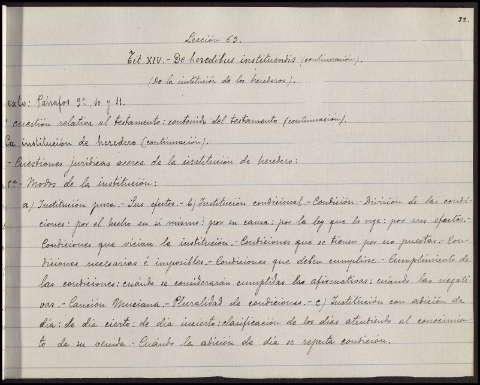 32.
Lección 63.
Tit. XIV. - De heredibus instituendis (continuación).
(De la institución de los herederos).
exto: Párrafos 9º 10 y 11.
cuestión relativa al testamento: contenido del testamento (continuación).
La institución de heredero (continuación).
- Cuestiones jurídicas acerca de la institución de heredero:
- Modos de la institución:
a) Institución pura. - Sus efectos. - b) Institución condicional. - Condición. - División de las condi-
ciones: por el hecho en si mismo; por su causa; por la ley que lo rige; por sus efectos. -
Condiciones que vician la institución. - Condiciones que se tienen por no puestas. - Con-
diciones necesarias é imposibles. - Condiciones que deben cumplirse. - Cumplimiento de
las condiciones: cuándo se considerarán cumplidas las afirmativas; cuándo las negati-
vas. - Caución Muciana. - Pluralidad de condiciones. - c) Institución con adición de
día: de día cierto; de día incierto; clasificación de los días atendiendo al conocimien-
to de su venida. - Cuándo la adición de día se reputa condición.